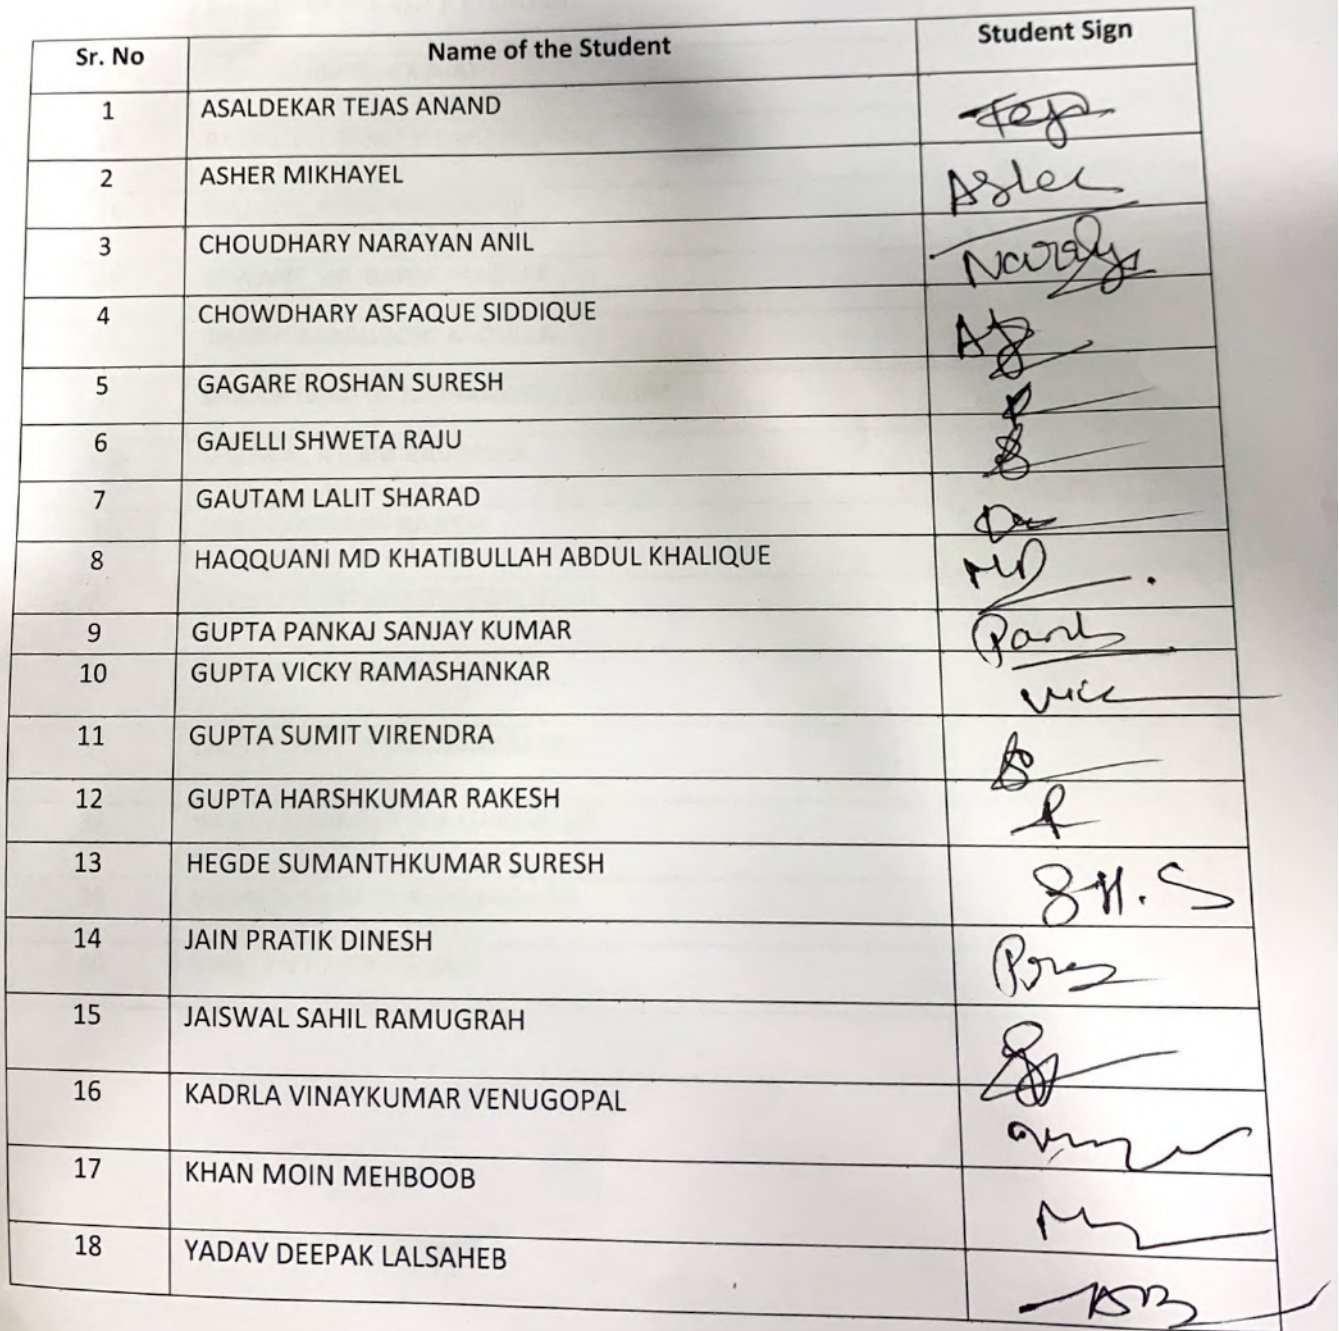 Sr. No Name of the Student Student Sign
1 ASALDEKAR TEJAS ANAND
2 ASHER MIKHAYEL
3 CHOUDHARY NARAYAN ANIL
4 CHOWDHARY ASFAQUE SIDDIQUE
5 GAGARE ROSHAN SURESH
6 GAJELLI SHWETA RAJU
7 GAUTAM LALIT SHARAD
8 HAQQUANI MD KHATIBULLAH ABDUL KHALIQUE MD
9 GUPTA PANKAJ SANJAY KUMAR
10 GUPTA VICKY RAMASHANKAR
11 GUPTA SUMIT VIRENDRA
12 GUPTA HARSHKUMAR RAKESH
13 HEGDE SUMANTHKUMAR SURESH S H. S
14 JAIN PRATIK DINESH
15 JAISWAL SAHIL RAMUGRAH
16 KADRLA VINAYKUMAR VENUGOPAL
17 KHAN MOIN MEHBOOB
18 YADAV DEEPAK LALSAHEB